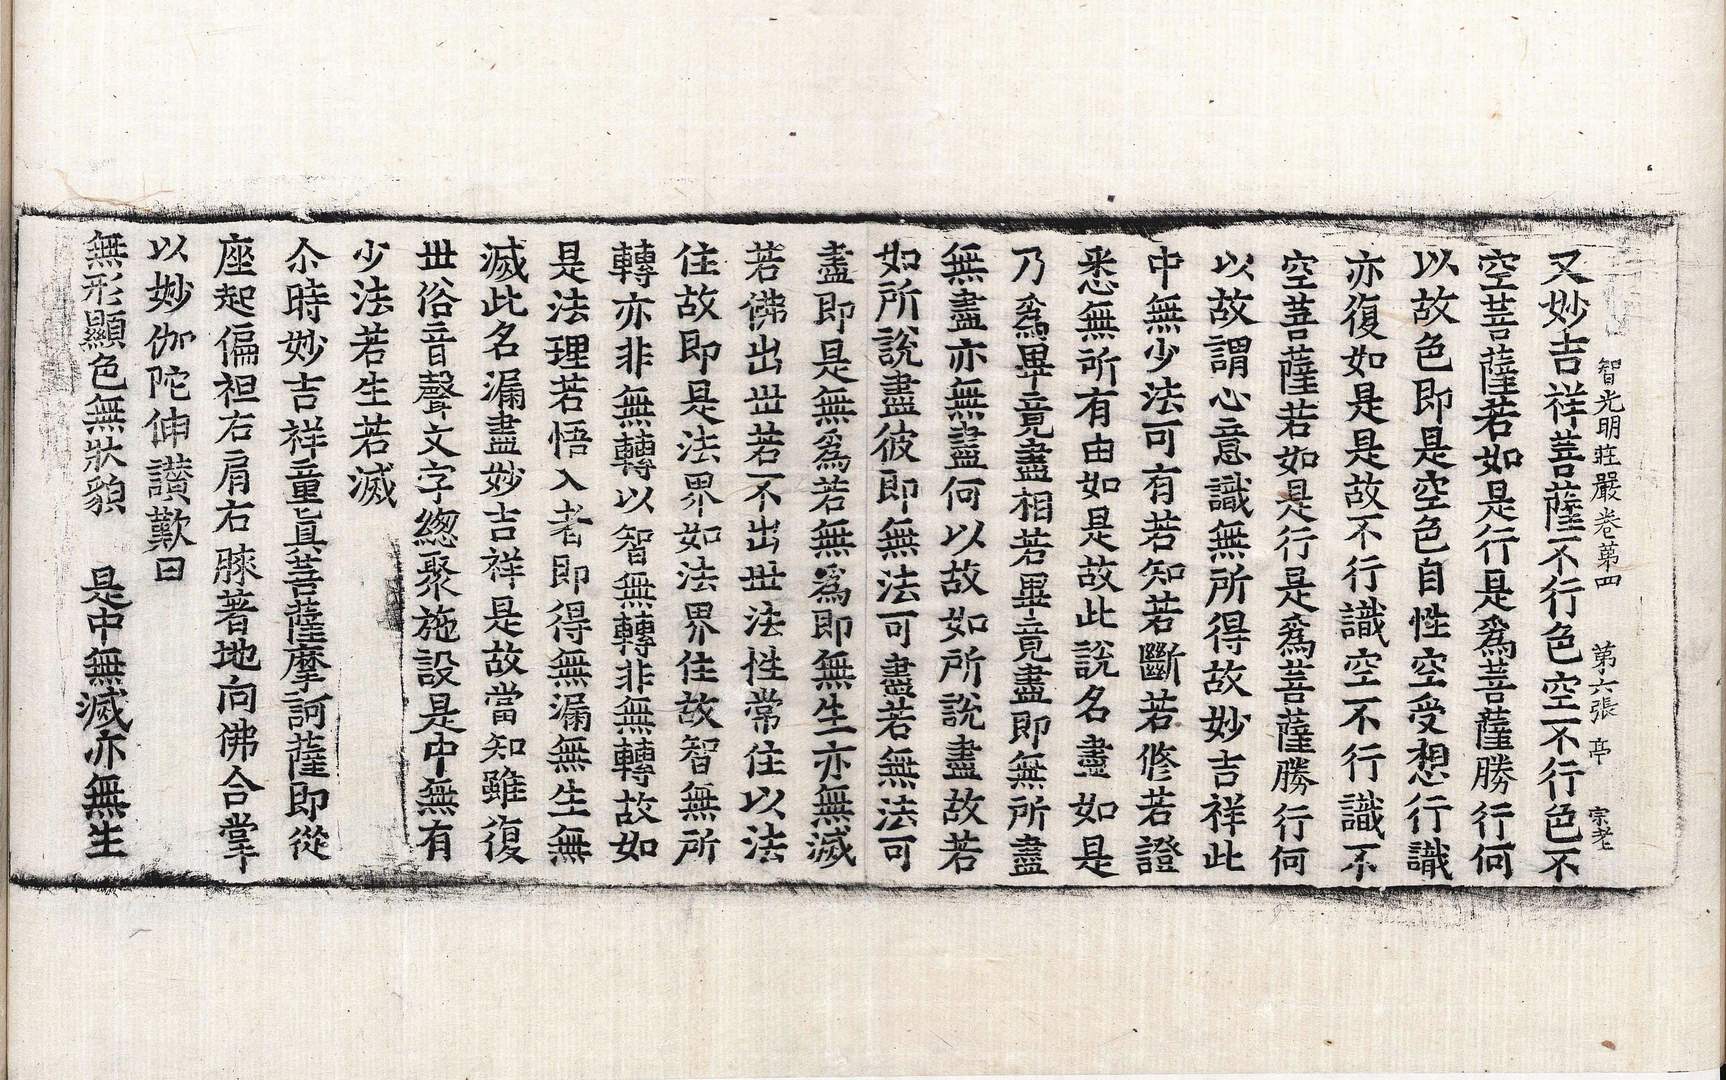 智光明莊嚴卷第四 第六張 亭 宗老
又妙吉祥菩薩不行色空不行色不
空菩薩若如是行是爲菩薩勝行何
以故色即是空色自性空受想行識
亦復如是是故不行識空不行識不
空菩薩若如是行是爲菩薩勝行何
以故謂心意識無所得故妙吉祥此
中無少法可有若知若斷若修若證
悉無所有由如是故此說名盡如是
乃爲畢竟盡相若畢竟盡即無所盡
無盡亦無盡何以故如所說盡故若
如所說盡彼即無法可盡若無法可
盡即是無爲若無爲即無生亦無滅
若佛出世若不出世法性常住以法
住故即是法界如法界住故智無所
轉亦非無轉以智無轉非無轉故如
是法理若悟入者即得無漏無生無
滅此名漏盡妙吉祥是故當知雖復
世俗音聲文字緫聚施設是中無有
少法若生若滅
尒時妙吉祥童眞菩薩摩訶薩即從
座起偏袒右肩右膝著地向佛合掌
以妙伽陀伸讃歎曰
無形顯色無狀貌 是中無滅亦無生